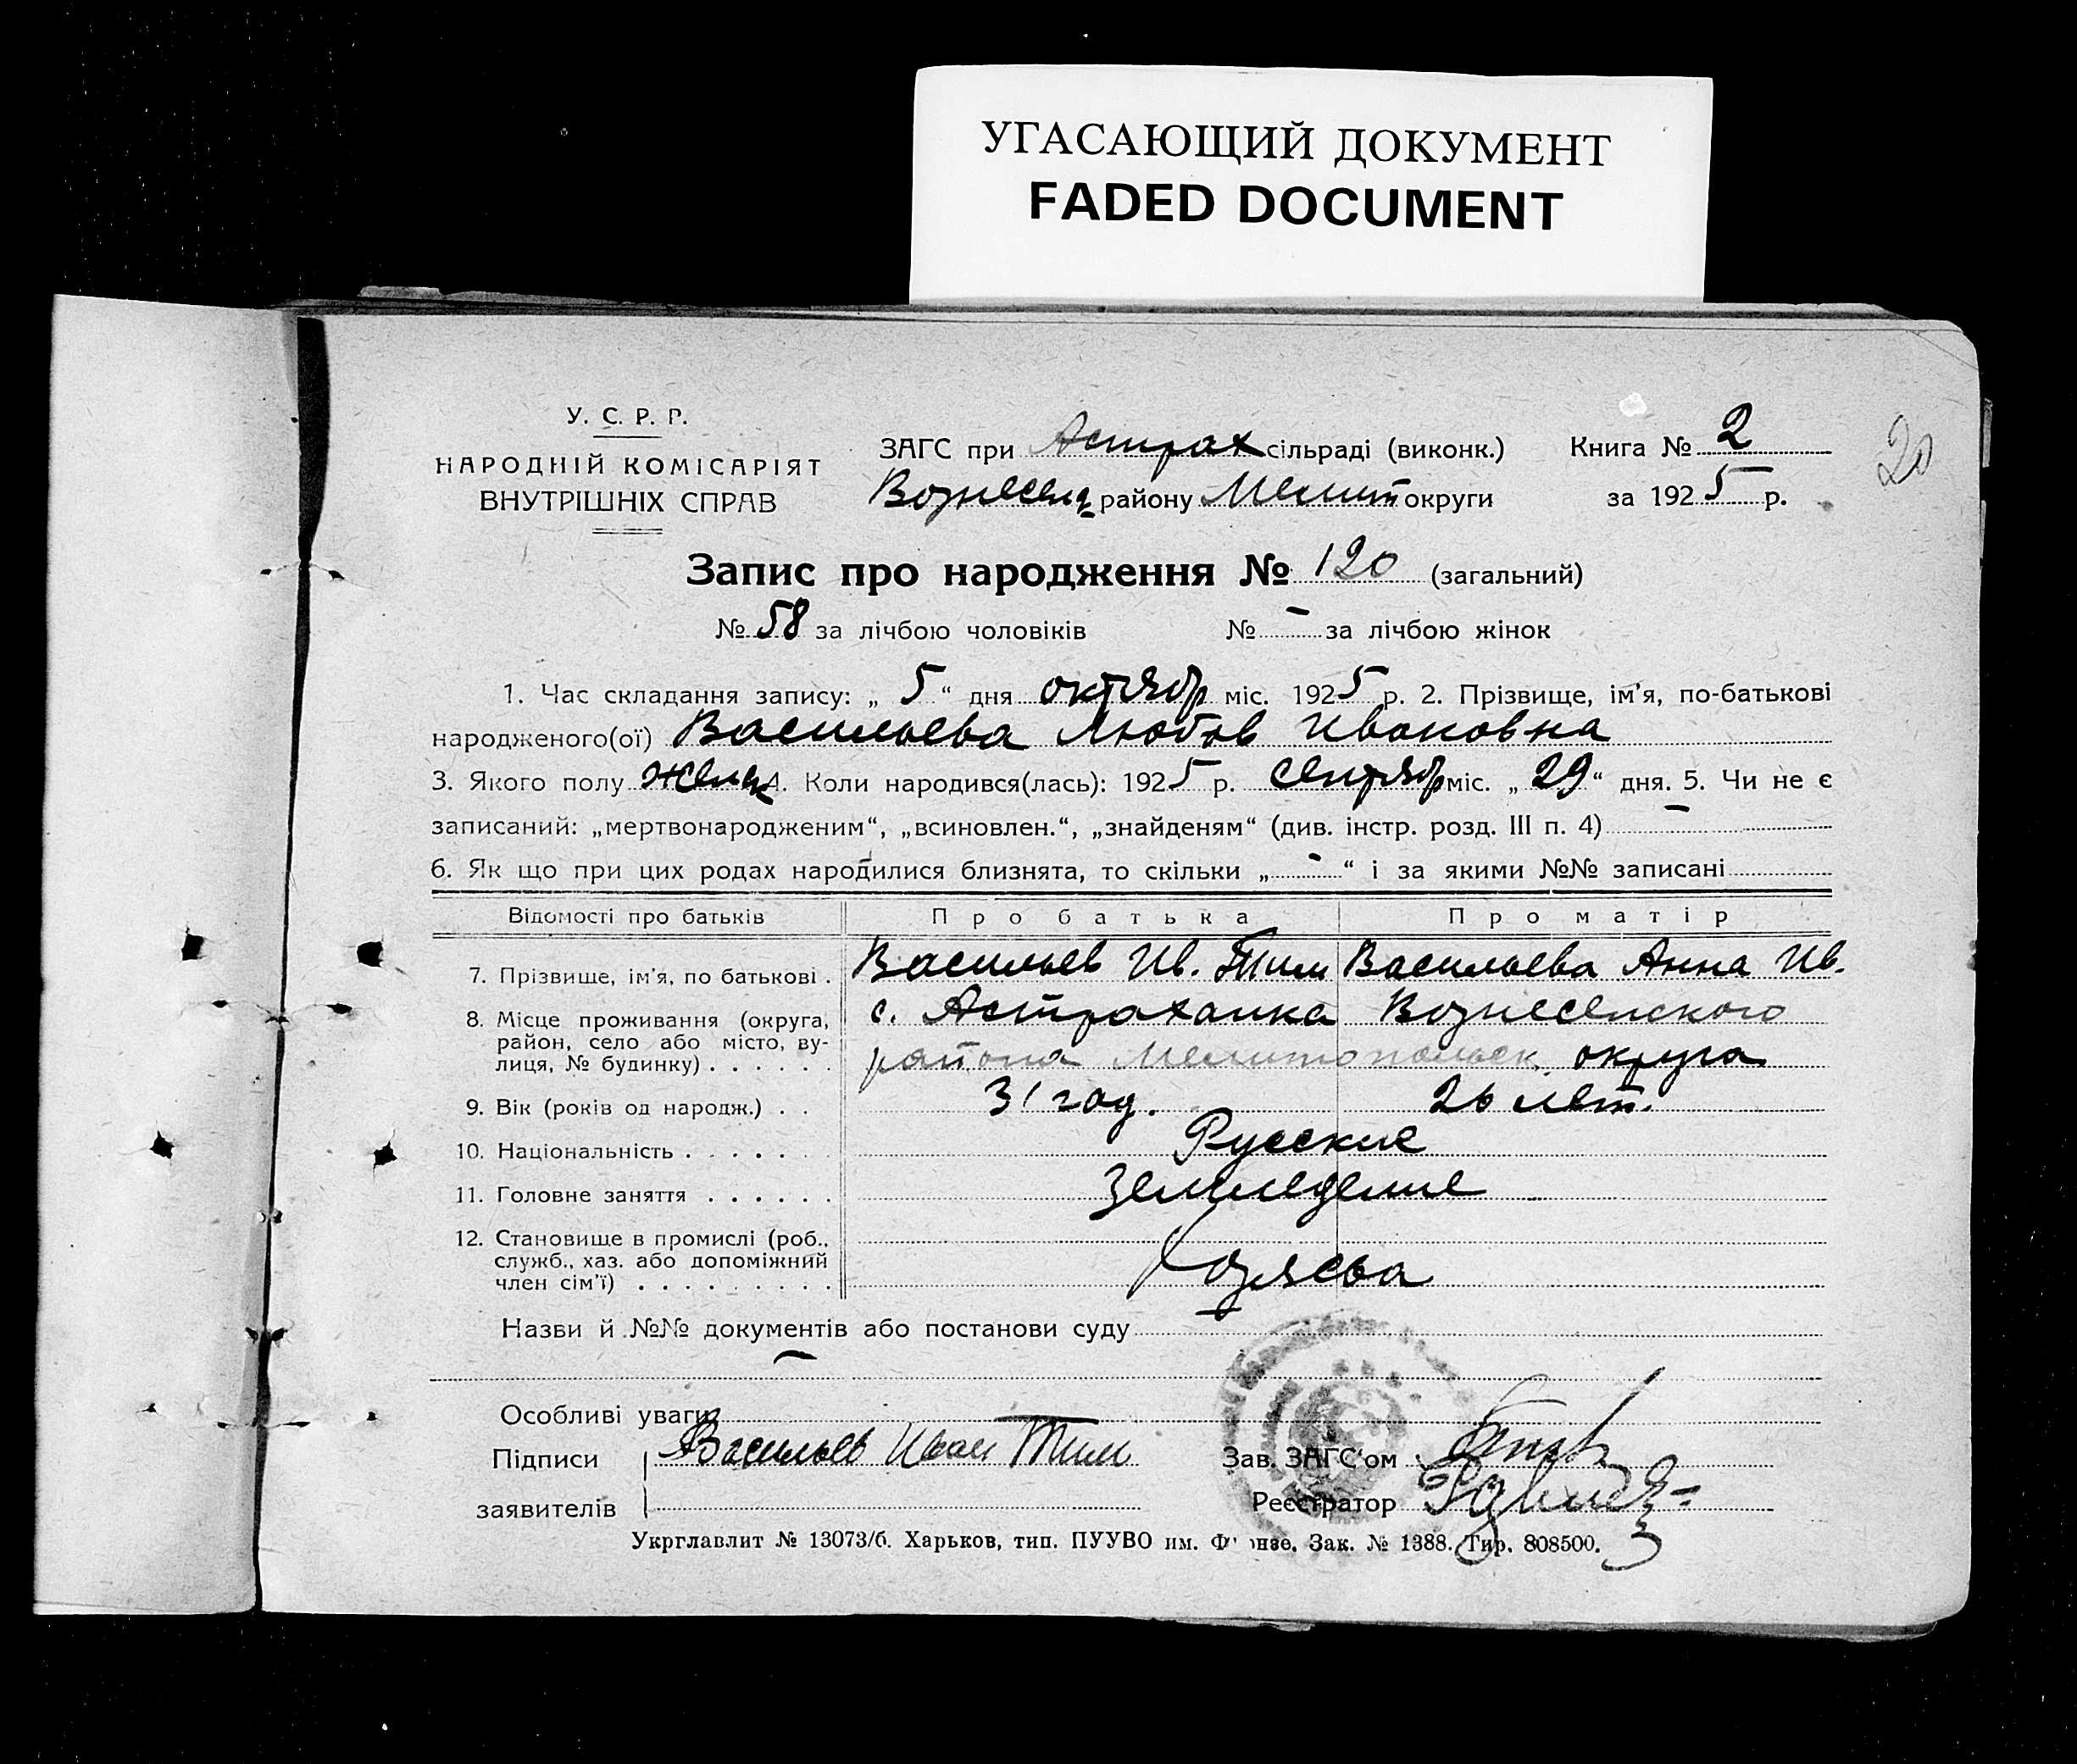 УГАСАЮЩИЙ ДОКУМЕНТ
FADED DOCUMENT
У. С. Р. Р.
НАРОДНІЙ КОМІСАРІЯТ
ВНУТРІШНІХ СПРАВ
ЗАГС при Астрах сільраді (виконк.)
Вознесенк району Мелит округи
Книга № 2
за 1925 р.
20
Запис про народження № 120 (загальний)
№ 58 за лічбою чоловіків № - за лічбою жінок
1. Час складання запису: „ 5 “ дня октябр міс. 1925 р. 2. Прізвище, ім'я, по-батькові
народженого(ої) Васильева Любов Ивановна
3. Якого полу женск 4. Коли народився(лась): 1925 р. сентябр міс. „ 29 “ дня. 5. Чи не є
записаний: „мертвонародженим“, „всиновлен.“, „знайденям“ (див. інстр. розд. III п. 4) -
6. Як що при цих родах народилися близнята, то скільки „ - “ і за якими №№ записані
Відомості про батьків Про батька Про матір
7. Прізвище, ім'я, по батькові . Васильев Ив. Тим Васильева Анна Ив.
8. Місце проживання (округа, район, село або місто, вулиця, № будинку) . . . . . . с. Астраханка Вознесенского
района Мелитопольск. округа
9. Вік (років од народж.) . . 31 год. 26 лет.
10. Національність . . . . . . Русские
11. Головне заняття . . . . . . Земледелие
12. Становище в промислі (роб., служб., хаз. або допоміжний член сім'ї) . . . . . . . . . Хозяева
Назви й №№ документів або постанови суду -
-
Особливі уваги
Підписи Васильев Иван Тим
заявителів
Зав. ЗАГС'ом
Реєстратор
Укрглавлит № 13073/б. Харьков, тип. ПУУВО им. Фрунзе. Зак. № 1388. Тир. 808500.